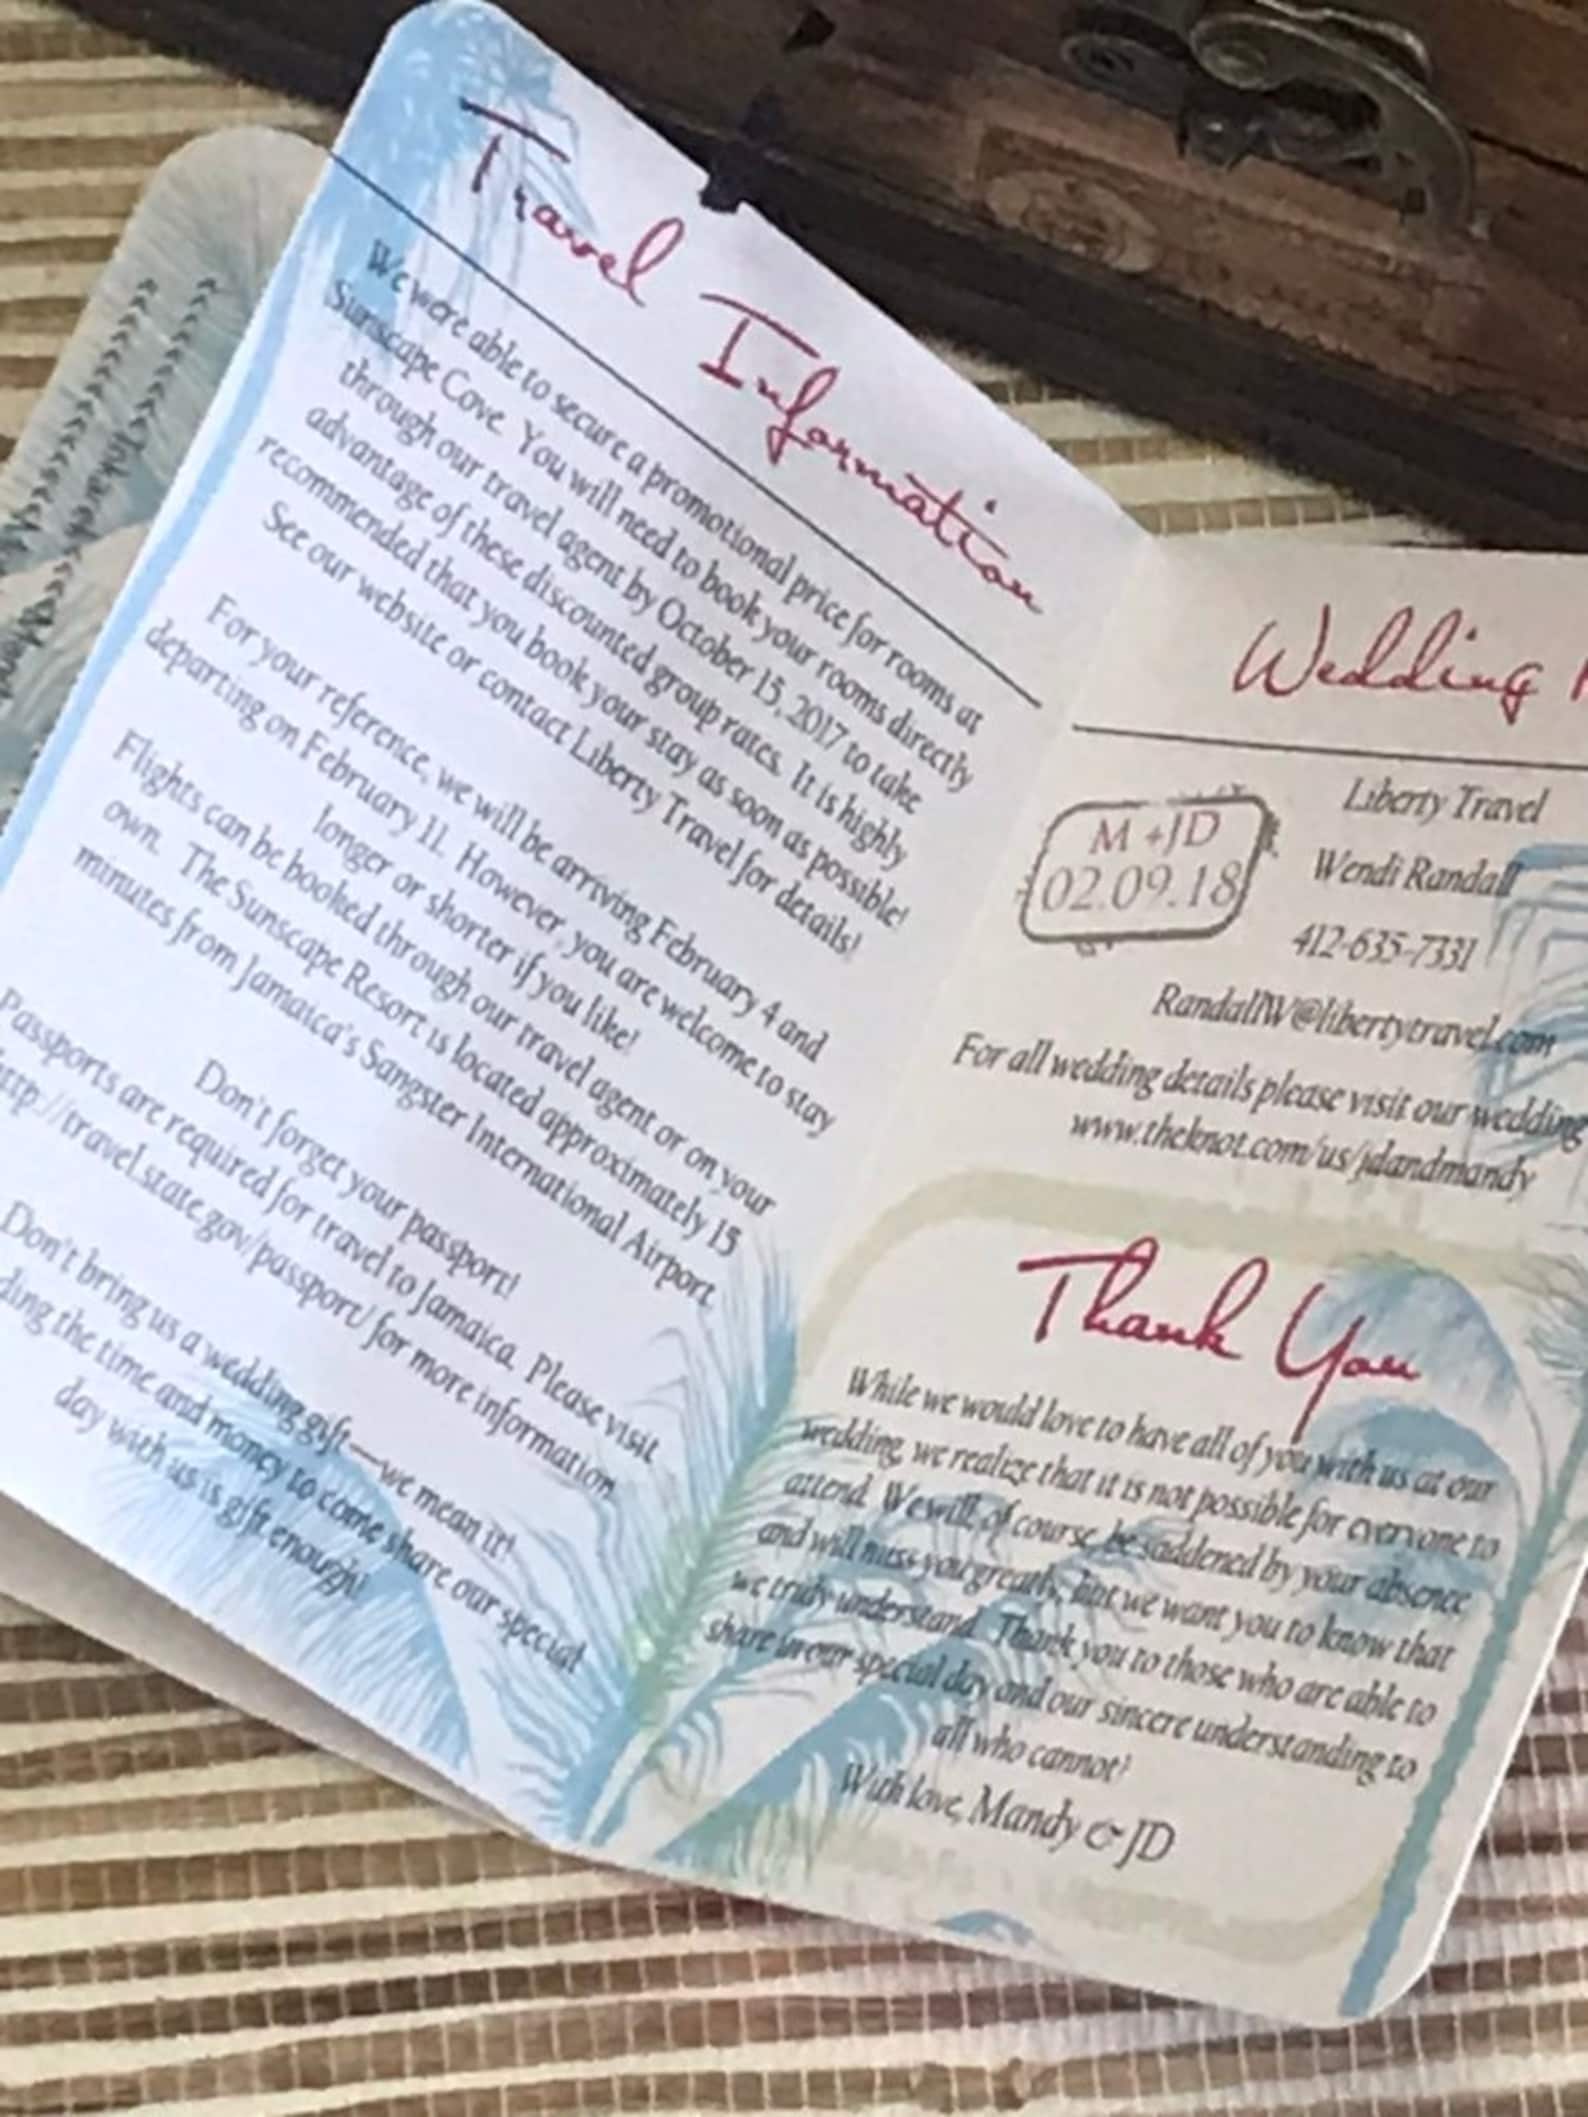 Travel Information
We were able to secure a promotional price for rooms at
Sunscape Cove. You will need to book your rooms directly
through our travel agent by October 15, 2017 to take
advantage of these discounted group rates. It is highly
recommended that you book your stay as soon as possible!
See our website or contact Liberty Travel for details!
For your reference, we will be arriving February 4 and
departing on February 11. However, you are welcome to stay
longer or shorter if you like!
Flights can be booked through our travel agent or on your
own. The Sunscape Resort is located approximately 15
minutes from Jamaica's Sangster International Airport.
Don't forget your passport!
Passports are required for travel to Jamaica. Please visit
http://travel.state.gov/passport/ for more information.
Don't bring us a wedding gift—we mean it!
the time and money to come share our special
day with us is gift enough!
Wedding
Liberty Travel
M + JD
02.09.18
Wendi Randall
412-635-7331
RandallW@libertytravel.com
For all wedding details please visit our wedding
www.theknot.com/us/jdandmandy
Thank You
While we would love to have all of you with us at our
wedding, we realize that it is not possible for everyone to
attend. We will, of course, be saddened by your absence
and will miss you greatly, but we want you to know that
we truly understand. Thank you to those who are able to
share in our special day and our sincere understanding to
all who cannot!
With love, Mandy & JD